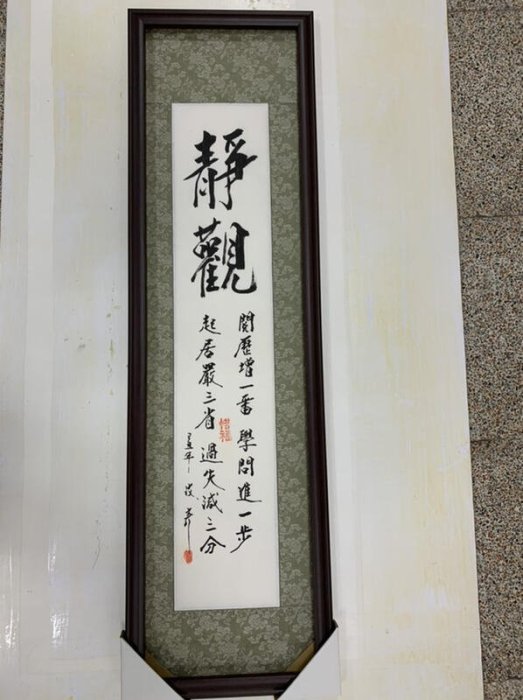 靜觀
閱歷增一番 學問進一步
起居嚴三省 過失減三分
惜福